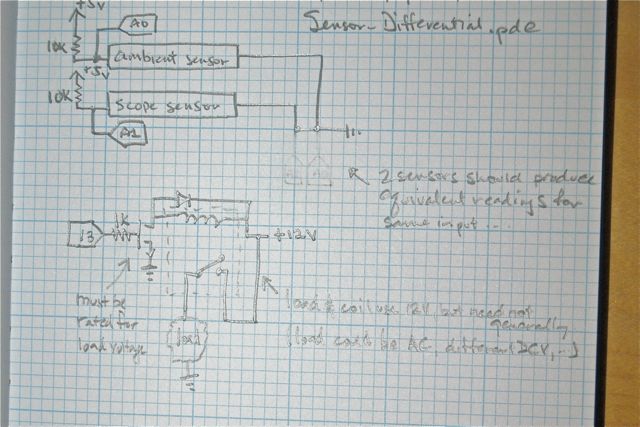 +5V
A0
Sensor-Differential.pde
10K
ambient sensor
+5V
10K
scope sensor
A1
2 sensors should produce
equivalent readings for
same input...
1K
13
+12V
must be
rated for
load voltage
load
load & coil use 12V, but need not
generally
(load could be AC, different DCV, ...)